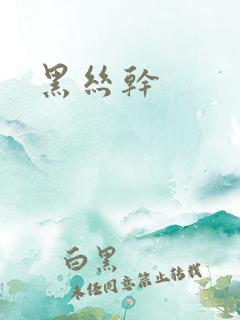 黑絲幹
白黑
未经同意禁止转载